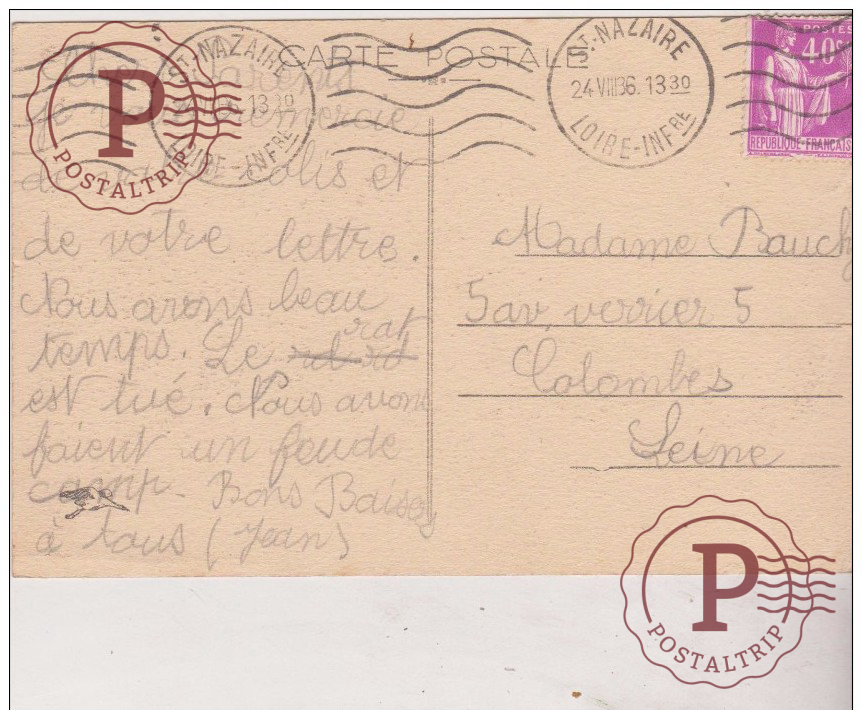 CARTE POSTALE
Chers Parents
je vous remercie
de votre colis et
de votre lettre.
Nous avons beau
temps. Le rat
est tué. Nous avons
faient un feu de
camp. Bons Baisers
à tous (Jean)
ST. NAZAIRE
13 30
LOIRE-INFRE
ST. NAZAIRE
24 VIII 36. 13 30
LOIRE-INFRE
POSTES
40c
REPUBLIQUE-FRANCAISE
Madame Bauch
5 av. verrier 5
Colombes
Seine
P
POSTALTRIP
P
POSTALTRIP